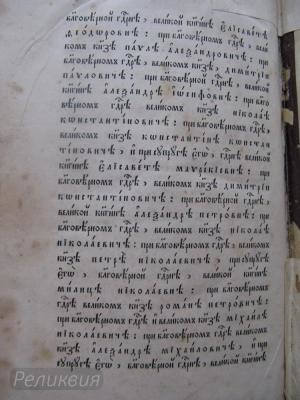 благовѣ́рной гдⷭ҇рнѣ, вели́кой кнгі́нѣ є҆лїсаве́тѣ
ѳео́дѡровнѣ: прѝ бл҃говѣ́рномъ гдⷭ҇рѣ, вели́-
комъ кн҃зѣ па́ѵлѣ а҆леѯа́ндровичѣ: прѝ бл҃го-
вѣ́рномъ гдⷭ҇рѣ, вели́комъ кн҃зѣ дими́трїи
па́ѵловичѣ: прѝ бл҃говѣ́рной гдⷭ҇рнѣ, вели́кой
кнгі́нѣ а҆леѯа́ндрѣ і҆ѡ́сифовнѣ: прѝ бл҃го-
вѣ́рномъ гдⷭ҇рѣ, вели́комъ кн҃зѣ нїкола́ѣ
кѡнстанті́новичѣ: прѝ бл҃говѣ́рномъ гдⷭ҇рѣ,
вели́комъ кн҃зѣ кѡнстанті́нѣ кѡнстан-
ті́новичѣ, и҆ прѝ сꙋпрꙋ́гѣ є҆гѡ̀, бл҃говѣ́рной гдⷭ҇рнѣ, вели́кой
кнгі́нѣ є҆лїсаве́тѣ маѵрикі́евнѣ: прѝ
бл҃говѣ́рномъ гдⷭ҇рѣ, вели́комъ кн҃зѣ дими́трїи
кѡнстанті́новичѣ: прѝ бл҃говѣ́рной гдⷭ҇рнѣ,
вели́кой кнгі́нѣ а҆леѯа́ндрѣ петро́внѣ: прѝ
бл҃говѣ́рномъ гдⷭ҇рѣ, вели́комъ кн҃зѣ нїкола́ѣ
нїкола́евичѣ: прѝ бл҃говѣ́рномъ гдⷭ҇рѣ, вели́комъ
кн҃зѣ петрѣ̀ нїкола́евичѣ, и҆ прѝ сꙋпрꙋ́гѣ
є҆гѡ̀, бл҃говѣ́рной гдⷭ҇рнѣ, вели́кой кнгі́нѣ
мили́цѣ нїкола́евнѣ: прѝ бл҃говѣ́рномъ
гдⷭ҇рѣ вели́комъ кн҃зѣ рома́нѣ петро́вичѣ:
прѝ бл҃говѣ́рномъ гдⷭ҇рѣ и҆ вели́комъ кн҃зѣ мїхаи́лѣ
нїкола́евичѣ: прѝ бл҃говѣ́рномъ гдⷭ҇рѣ, вели́комъ
кн҃зѣ а҆леѯа́ндрѣ мїха́йловичѣ, и҆ прѝ
сꙋпрꙋ́гѣ є҆гѡ̀, бл҃говѣ́рной гдⷭ҇рнѣ, вели́кой кнгі́нѣ
Реликвия